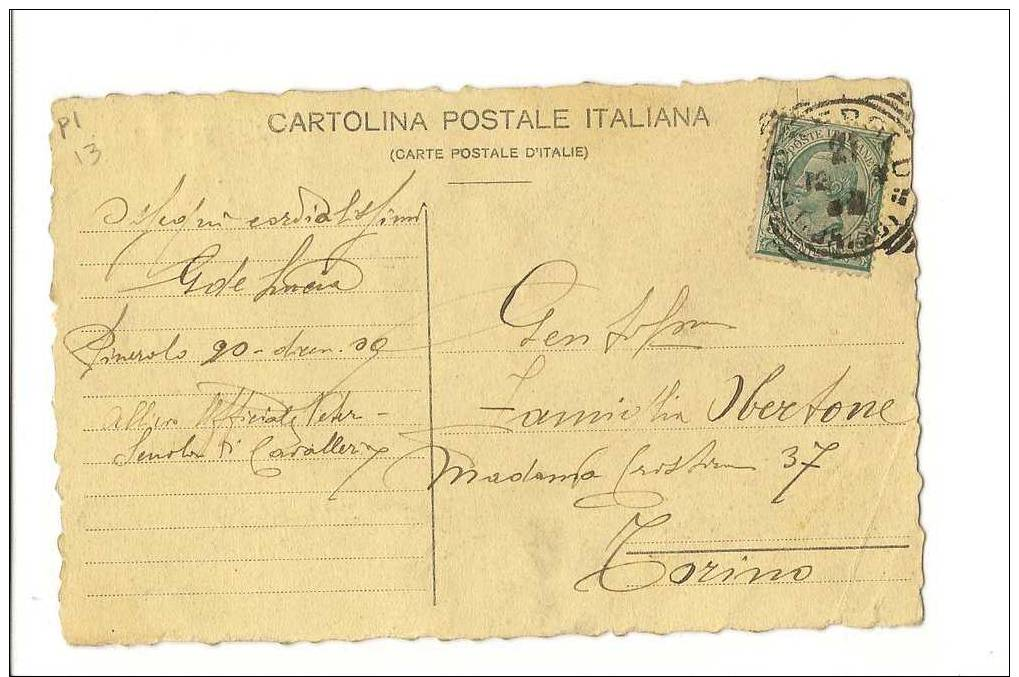 P1
13
CARTOLINA POSTALE ITALIANA
(CARTE POSTALE D'ITALIE)
POSTE ITALIANE
21
12
Ossequi cordialissimi
G de Lucia
Pinerolo 20 - dicem. 09
Allievo Ufficiale Veter -
Scuola di Cavalleria
Famiglia Obertone
Madama Cristina 37
Torino